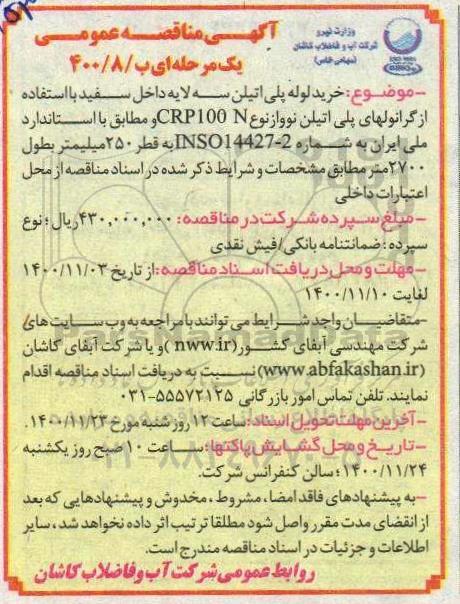 وزارت نیرو
شرکت آب و فاضلاب کاشان
(سهامی خاص)
آگهی مناقصه عمومی
یک مرحله‌ای ب/۴۰۰/۸
-موضوع: خرید لوله پلی اتیلن سه لایه داخل سفید با استفاده
از گرانولهای پلی اتیلن نو از نوع CRP100 N و مطابق با استاندارد
ملی ایران به شماره INSO14427-2 به قطر ۲۵۰ میلیمتر بطول
۲۷۰۰ متر مطابق مشخصات و شرایط ذکر شده در اسناد مناقصه از محل
اعتبارات داخلی
-مبلغ سپرده شرکت در مناقصه: ۴۳۰,۰۰۰,۰۰۰ ریال؛ نوع
سپرده: ضمانتنامه بانکی/فیش نقدی
-مهلت و محل دریافت اسناد مناقصه: از تاریخ ۱۴۰۰/۱۱/۰۳
لغایت ۱۴۰۰/۱۱/۱۰
-متقاضیان واجد شرایط می توانند با مراجعه به وب سایت های
شرکت مهندسی آبفای کشور (nww.ir) و یا شرکت آبفای کاشان
(www.abfakashan.ir) نسبت به دریافت اسناد مناقصه اقدام
نمایند. تلفن تماس امور بازرگانی ۵۵۵۷۲۱۲۵-۰۳۱
-آخرین مهلت تحویل اسناد: ساعت ۱۲ روز شنبه مورخ ۱۴۰۰/۱۱/۲۳.
-تاریخ و محل گشایش پاکتها: ساعت ۱۰ صبح روز یکشنبه
۱۴۰۰/۱۱/۲۴؛ سالن کنفرانس شرکت.
-به پیشنهادهای فاقد امضا، مشروط، مخدوش و پیشنهادهایی که بعد
از انقضای مدت مقرر واصل شود مطلقا ترتیب اثر داده نخواهد شد، سایر
اطلاعات و جزئیات در اسناد مناقصه مندرج است.
روابط عمومی شرکت آب و فاضلاب کاشان